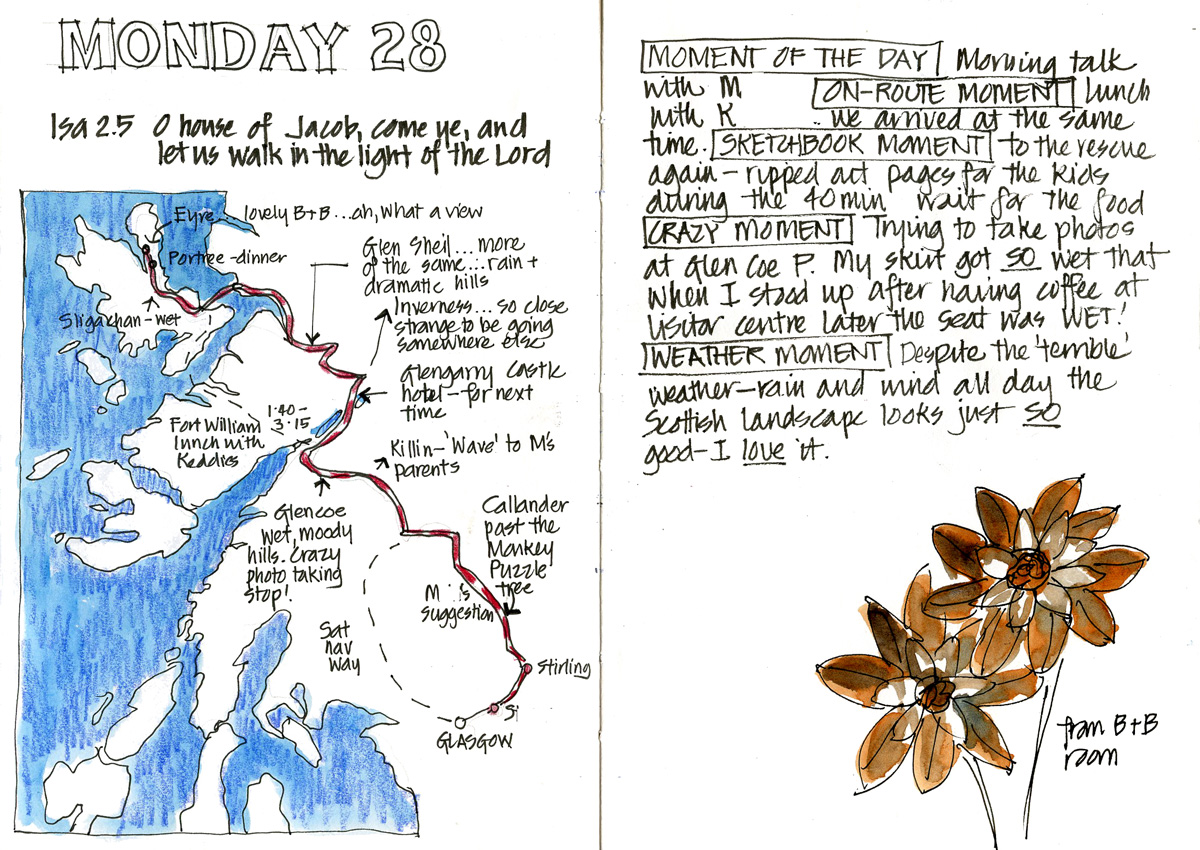 MONDAY 28
Isa 2.5 O house of Jacob, come ye, and
let us walk in the light of the Lord
Eyre... lovely B+B...ah, what a view
Portree - dinner
Sligachan - wet
Glen Sheil... more
of the same... rain +
dramatic hills
Inverness... so close
strange to be going
somewhere else
Glengarry Castle
hotel - for next
time
Fort William
lunch with
Keddies
1.40 -
3.15
Killin - 'Wave' to M's
parents
Glencoe
wet, moody
hills. Crazy
photo taking
stop!
Callander
past the
Monkey
Puzzle
tree
M is
suggestion
Sat
nav
way
Stirling
Si
GLASGOW
MOMENT OF THE DAY Morning talk
with M ON-ROUTE MOMENT Lunch
with K .. we arrived at the same
time. SKETCHBOOK MOMENT to the rescue
again - ripped out pages for the kids
during the 40 min wait for the food
CRAZY MOMENT Trying to take photos
at Glen Coe P. My skirt got so wet that
when I stood up after having coffee at
visitor centre later the seat was WET!
WEATHER MOMENT Despite the 'terrible'
weather - rain and wind all day the
Scottish landscape looks just so
good - I love it.
from B+B
room